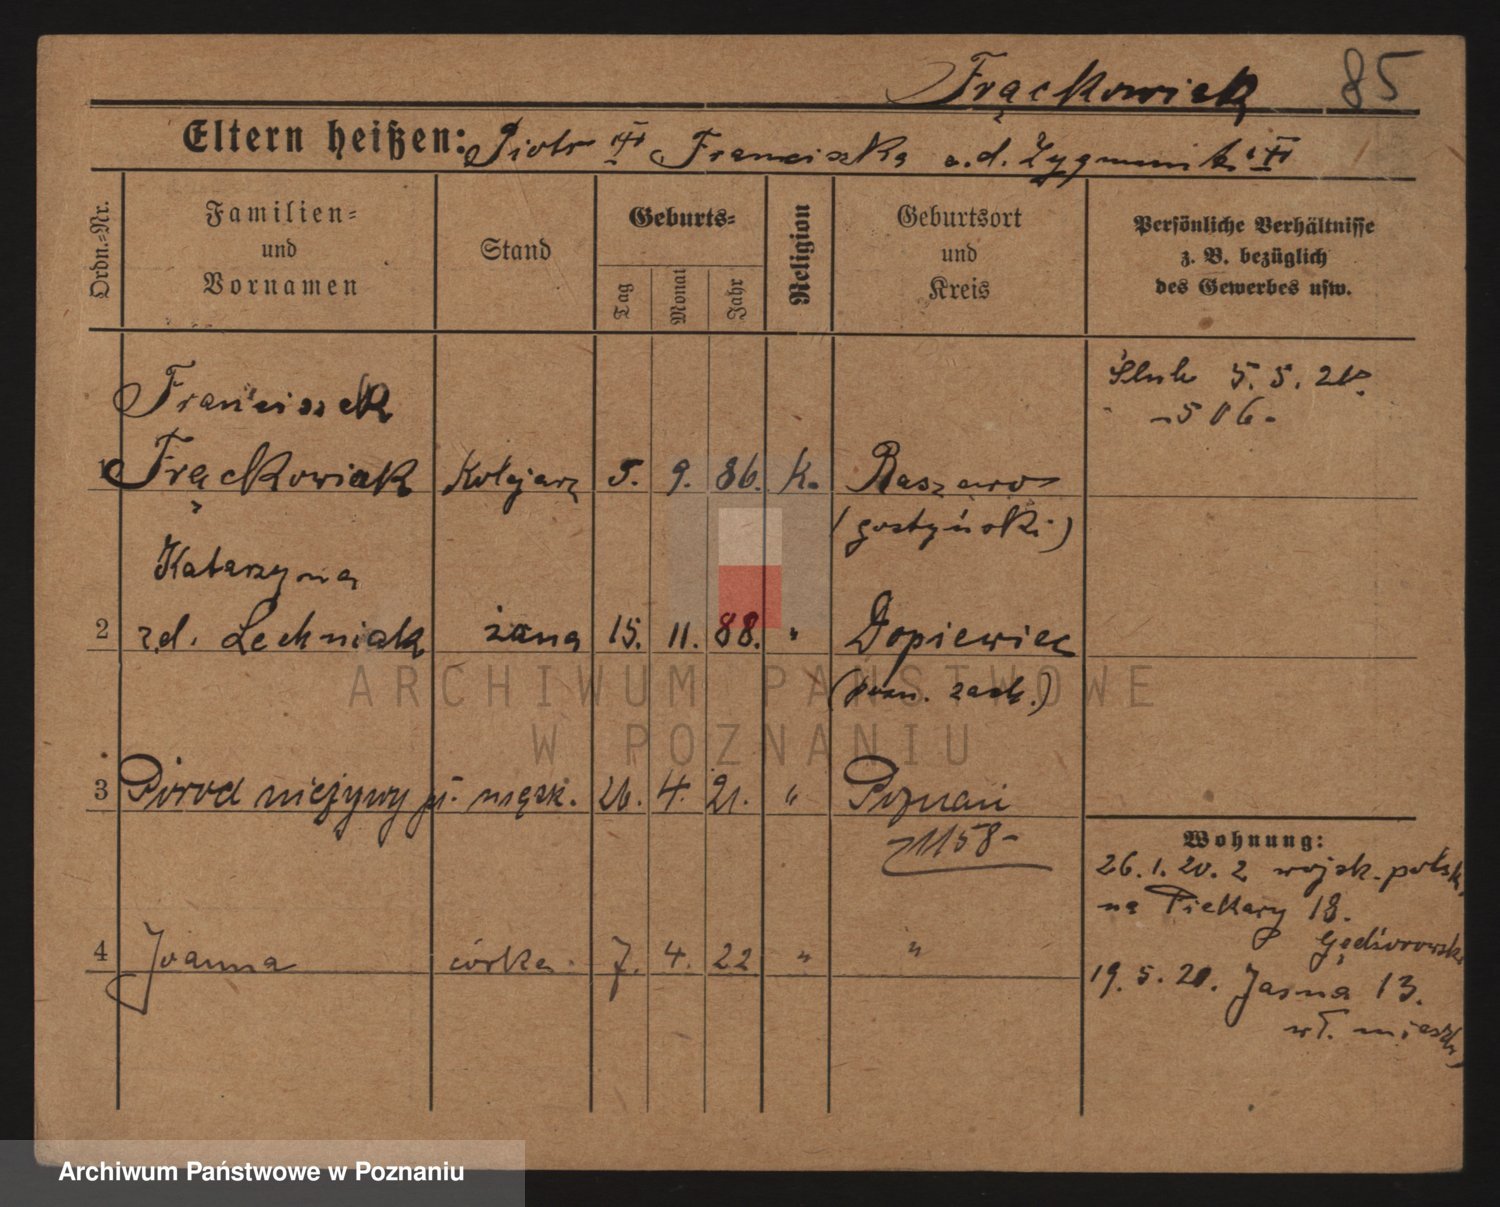 Frąckowiak 85
Eltern heißen: Piotr Franciszka z.d. Zygmunt
Ordn.-Nr.
Familien-
und
Vornamen
Stand
Geburts-
Tag
Monat
Jahr
Religion
Geburtsort
und
Kreis
Persönliche Verhältnisse
z. B. bezüglich
des Gewerbes usw.
Franciszek
1 Frąckowiak Kolejarz 5. 9. 86. k. Raszewo
(gostyński)
Ślub 5. 5. 20
506-
Katarzyna
2 z.d. Lechniak żona 15. 11. 88. " Dopiewiec
(pozn. zach.)
3 Poród nieżywy pł. męsk. 26. 4. 21. " Poznań
1158-
4 Joanna córka 7. 4. 22 " "
Wohnung:
26. 1. 20. z wojsk. polsk.
na Piekary 18.
19. 5. 20. Jasna 13.
wł. mieszk.
ARCHIWUM PAŃSTWOWE
W POZNANIU
Archiwum Państwowe w Poznaniu